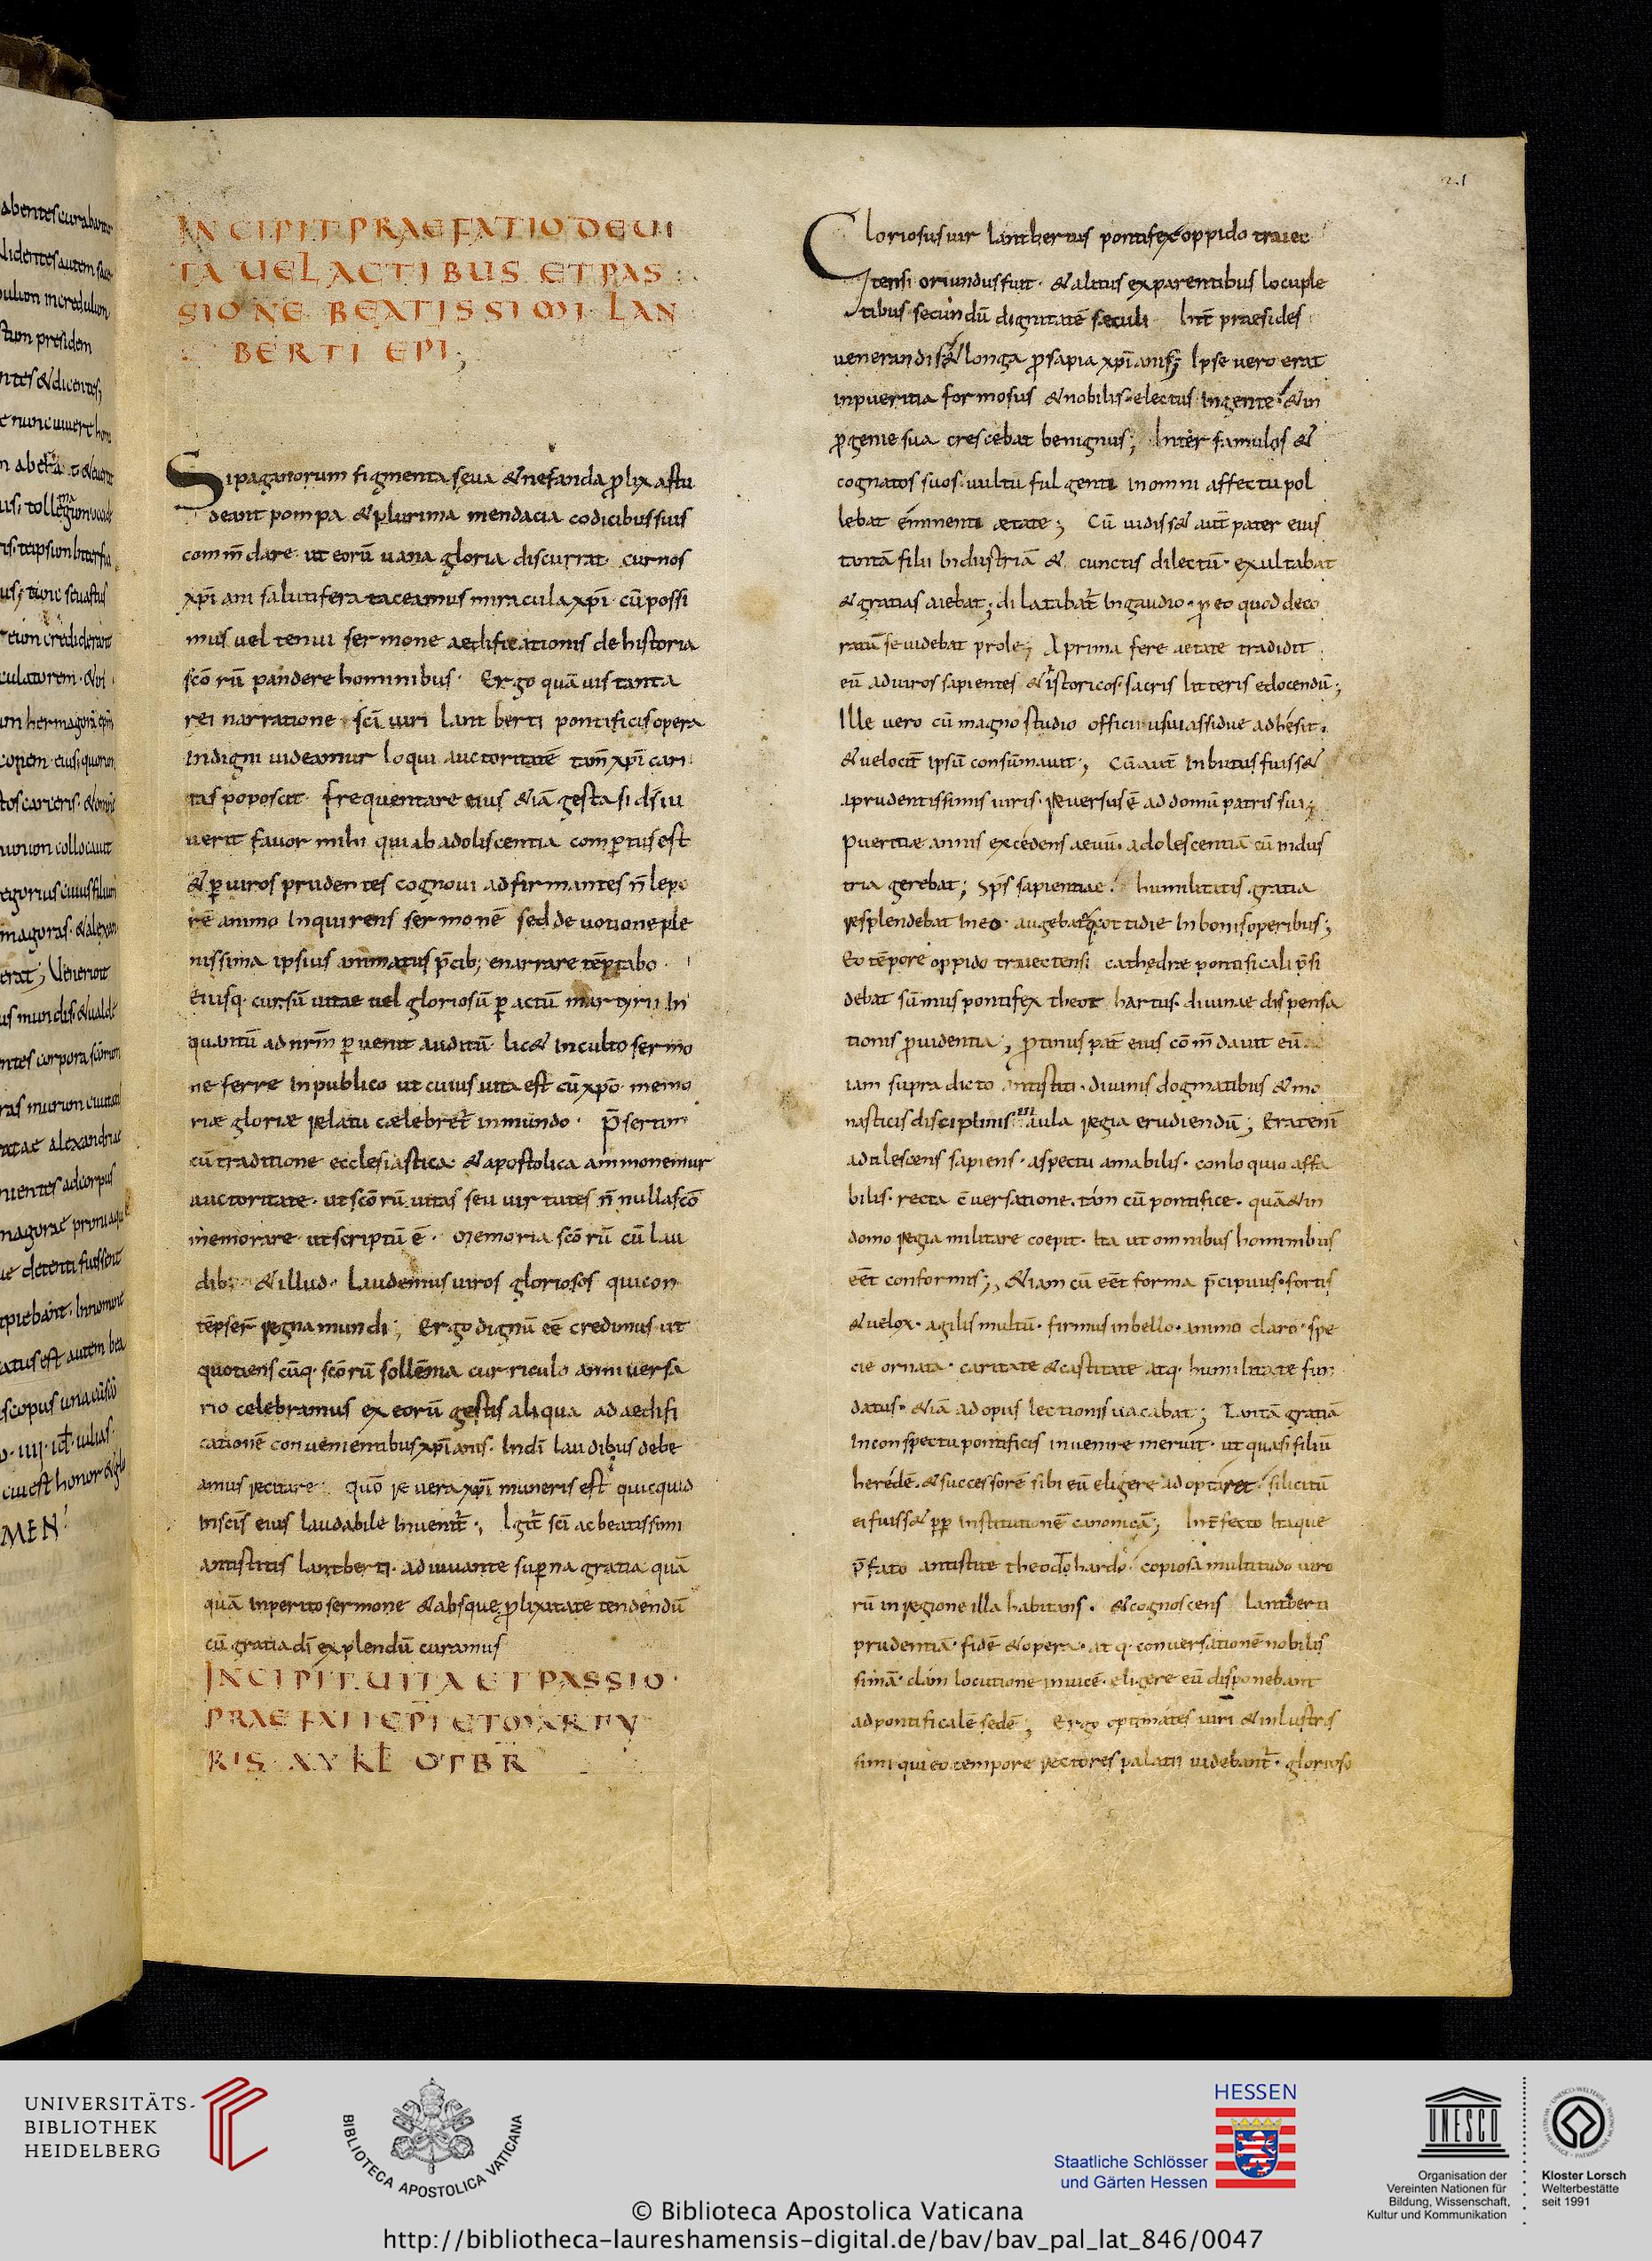 21
INCIPIT PRAEFATIO DE UI
TA UEL ACTIBUS ET PAS
SIONE BEATISSIMI LAN
BERTI EPI;
Si paganorum figmenta seua & nefanda plixa stu
deant pompa & plurima mendacia codicibus suis
comm̄dare ut eorū uana gloria discurrat cur nos
xp̄iani salutifera taceamus miracula xp̄i cū possi
mus uel tenui sermone aedificationis de historia
scōrū pandere hominibus Ergo quāuis tanta
rei narratione sc̄i uiri lantberti pontificis opera
Indigni uideamur loqui auctoritatē tam̄ xp̄i cari
tas poposcit frequentare eius &iā gesta si dī iu
uerit fauor mihi qui ab adoliscentia compertus est
& ꝑ uiros prudentes cognoui adfirmantes n̄ lepo
re animo Inquirens sermonē sed deuotione ple
nissima ipsius animatus p̄cib; enarrare tēptabo
Eiusq· cursū uitae uel gloriosū ꝑactū martyrii In
quantū ad nrm̄ ꝑuenit auditū lic& inculto sermo
ne ferre In publico ut cuius uita est cū xp̄o memo
riæ gloriæ relatu cælebret̄ in mundo· p̄sertim
cū traditione ecclesiastica & apostolica ammonemur
auctoritate· ut scōrū uitas seu uirtutes n̄ nulla scō
memorare ut scriptū ē· Memoria scōrū cū lau
dib; & illud· Laudemus uiros gloriosos qui con
tēpser̄ regna mundi; Ergo dignū eē credimus ut
quotienscūq· scōrū sollēnia curriculo anniuersa
rio celebramus ex eorū gestis aliqua ad aedifi
cationē conuenientibus xp̄ianis· Indī laudibus debe
amus recitare quō re uera xp̄i muneris est quicquid
In scis̄ eius laudabile Inuenit̄; Igit̄ sc̄i ac beatissimi
antistitis lantberti· adiuuante suꝑna gratia quā
quā inperito sermone & absque plixitate tendendū
cū gratia dī explendū curamus
INCIPIT UITA ET PASSIO
PRAEFATI EPI ET MARTY
RIS XV KL OTBR
Gloriosus uir lantbertus pontifex oppido traiec
tensi oriundus fuit· & alitus ex parentibus locuple
tibus secundū dignitatē sæculi Int̄ praesides
uenerandis& longa psapia xp̄ianis; Ipse uero erat
in pueritia formosus & nobilis electus In gente & in
pgenie sua crescebat benignus; Inter famulos &
cognatos suos· uultu fulgenti in omni affectu pol
lebat eminenti ætate; Cū uidiss& aut̄ pater eius
tantā filii Industriā & cunctis dilectū· exultabat
& gratias aiebat; dilatabat̄ In gaudio· p eo quod deco
ratū se uidebat prole; A prima fere aetate tradidit
eū ad uiros sapientes & istoricos· sacris litteris edocendū;
Ille uero cū magno studio officii usui assidue adhesit·
& uelocit̄ ipsū consūmauit; Cū aut̄ Inbutus fuiss&
a prudentissimis uiris· reuersus ē ad domū patris sui;
Pueritiæ annis excedens aeuū· adolescentiā cū indus
tria gerebat; Sp̄s sapientiae humilitatis gratia
resplendebat In eo· augebatq; cottidie In bonis operibus;
Eo tēpore oppido traiectensi cathedræ pontificali p̄si
debat sūmus pontifex theothartus· diuinae dispensa
tionis puidentia; protinus pat̄ eius cōm̄dauit eū
iam supra dicto antistiti· diuinis dogmatibus & mo
nasticis disciplinis aula regia erudiendū; Erat eni
adulescens sapiens· aspectu amabilis· conloquio affa
bilis· recta c̄uersatione· tam cū pontifice· quā & in
domo regia militare coepit· Ita ut omnibus hominibus
eēt conformis; &iam cū eēt forma p̄cipuus· fortis
& uelox· agilis multū· firmus in bello· animo claro· spe
cie ornata· caritate & castitate atq· humilitate fun
datus· &iā ad opus lectionis uacabat; Tantā gratiā
In conspectu pontificis inuenire meruit· ut quasi filiū
heredē· & successorē sibi eū eligere adoptaret· silicitū
ei fuiss& pp̄ Institutionē canonicā; Int̄fecto Itaque
p̄fato antistite theodohardo· copiosa multitudo uiro
rū in regione illa habitans· & cognoscens lantberti
prudentiā· fidē & opera· atq· conuersationē nobilis
simā· clam locutione inuicē· eligere eū disponebant
ad pontificalē sedē; Ergo optimates uiri & inlustris
simi qui eo tempore rectores palatii uidebant̄· glorioso
UNIVERSITÄTS-
BIBLIOTHEK
HEIDELBERG
BIBLIOTECA APOSTOLICA VATICANA
HESSEN
Staatliche Schlösser
und Gärten Hessen
UNESCO
Organisation der
Vereinten Nationen für
Bildung, Wissenschaft,
Kultur und Kommunikation
Kloster Lorsch
Welterbestätte
seit 1991
© Biblioteca Apostolica Vaticana
http://bibliotheca-laureshamensis-digital.de/bav/bav_pal_lat_846/0047